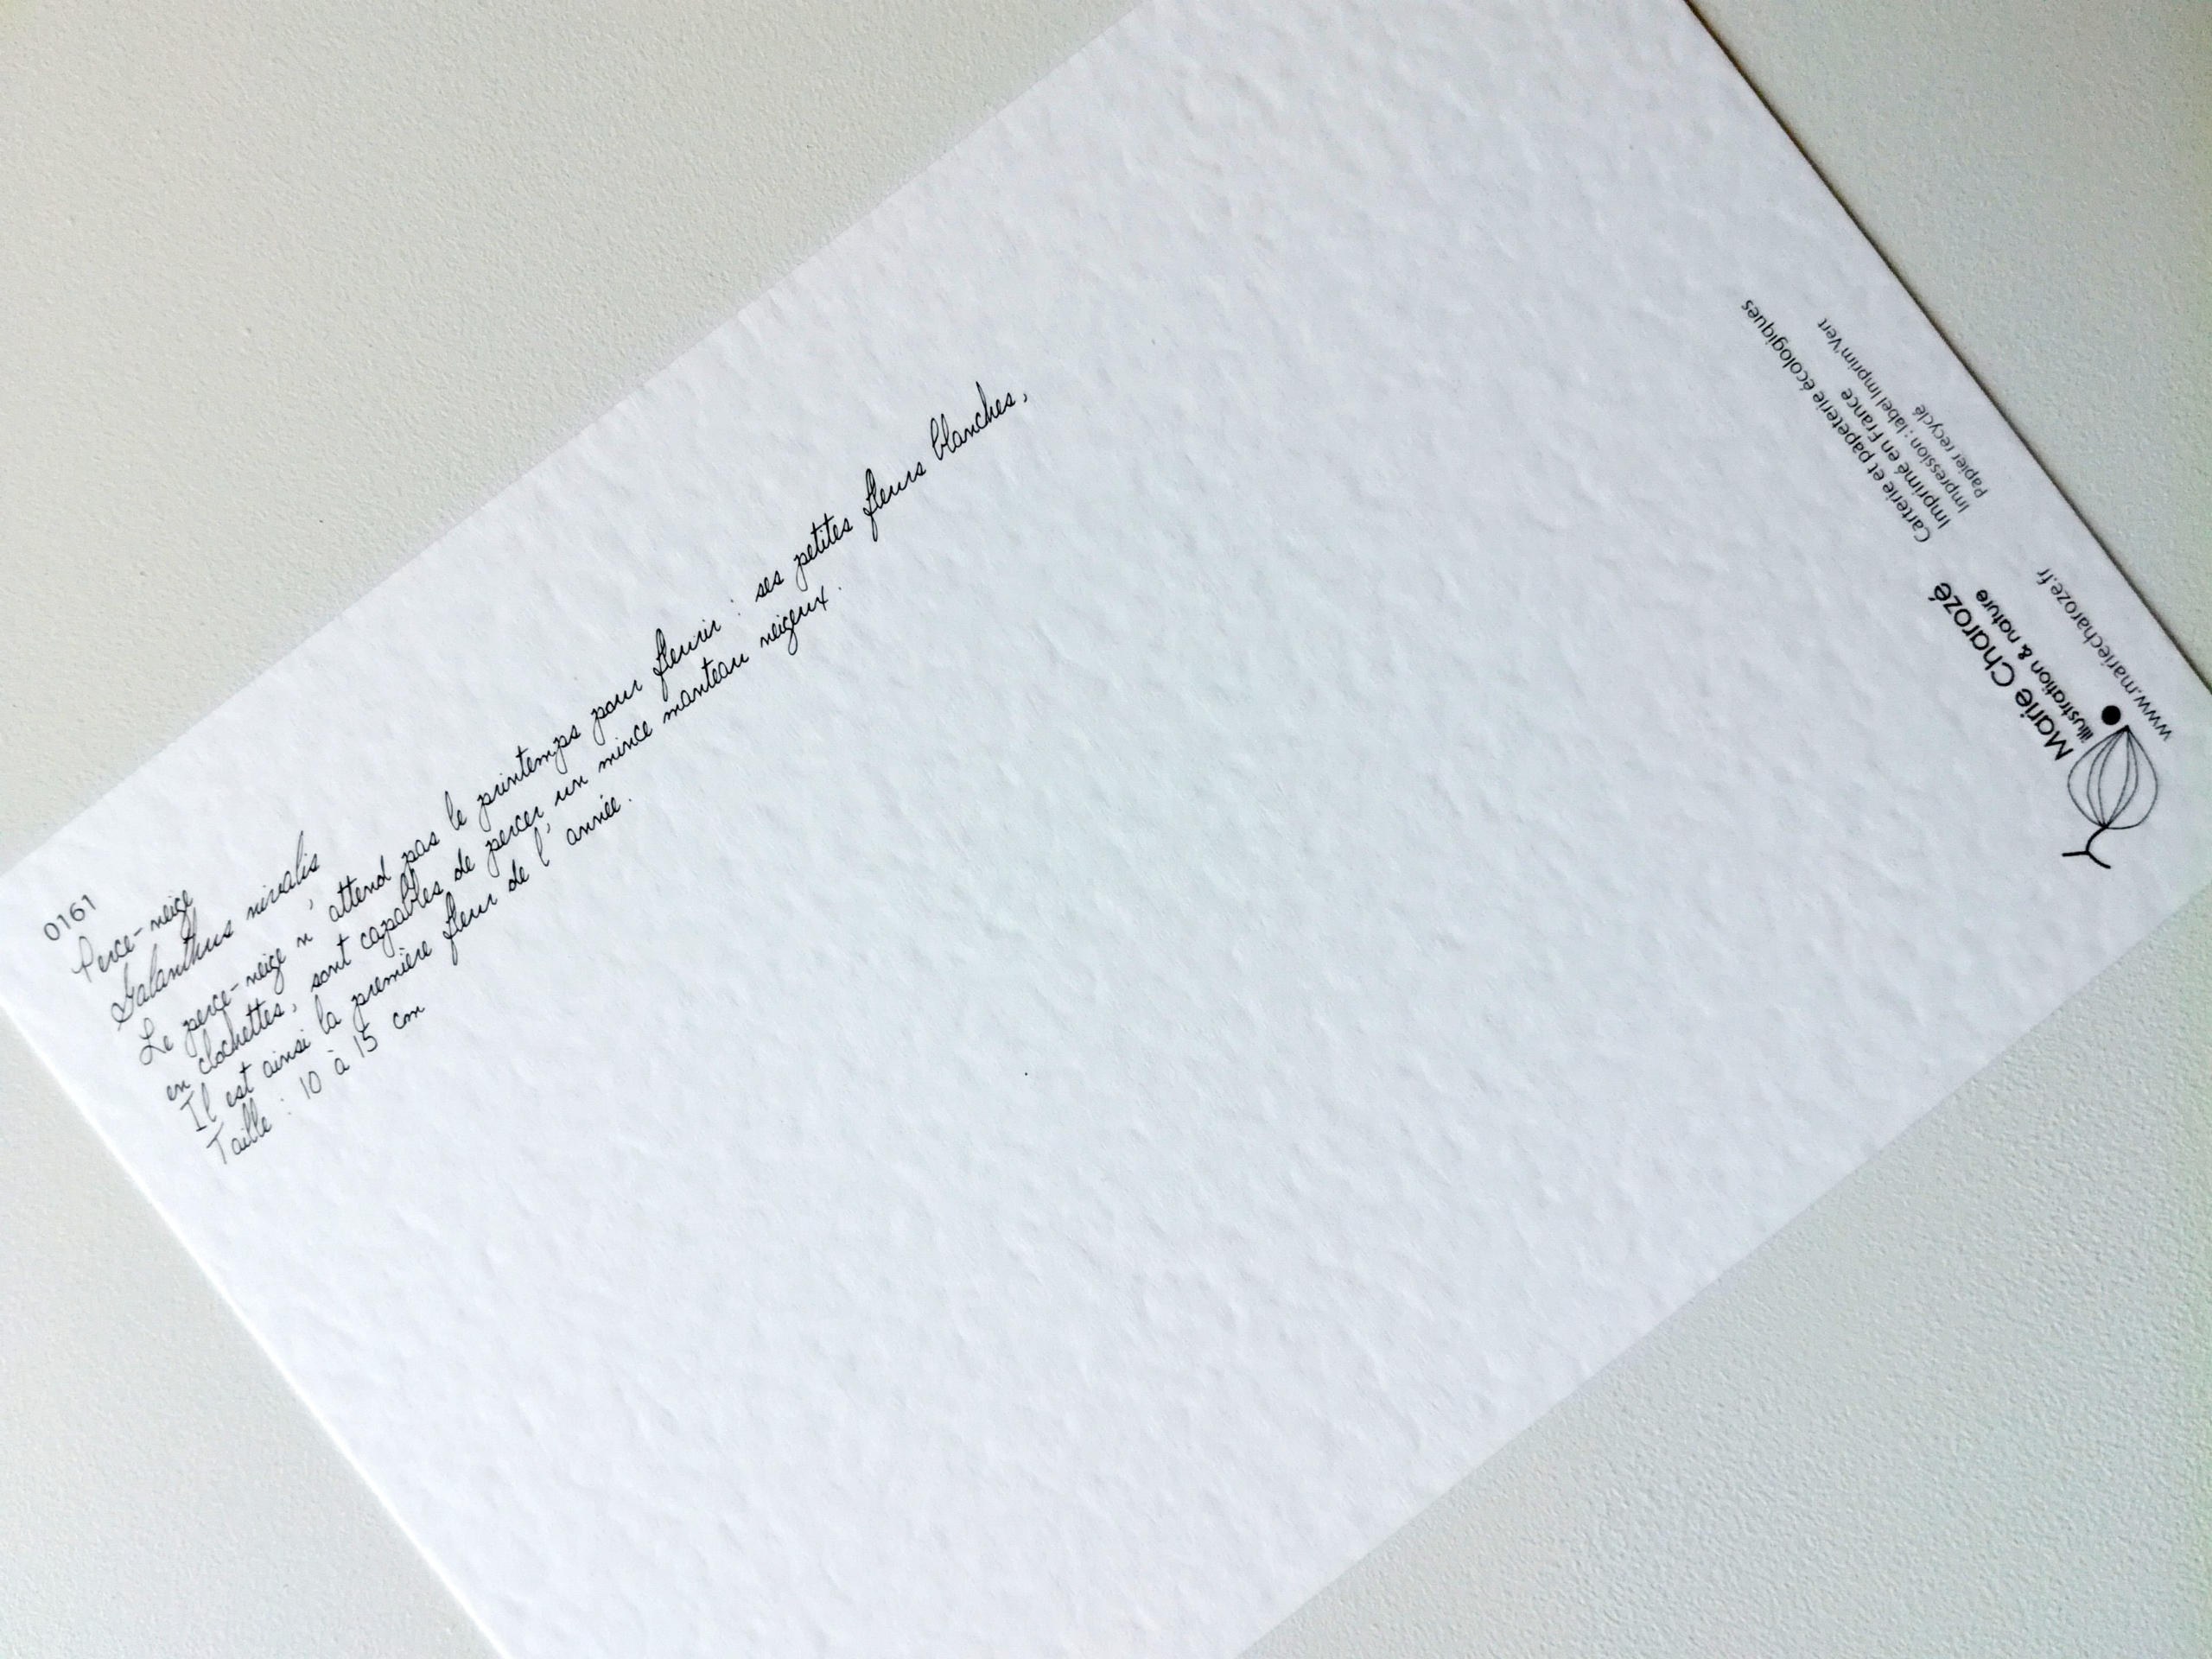 0161
Perce-neige
Galanthus nivalis
Le perce-neige n'attend pas le printemps pour fleurir : ses petites fleurs blanches,
en clochettes, sont capables de percer un mince manteau neigeux.
Il est ainsi la première fleur de l'année.
Taille : 10 à 15 cm
Marie Charozé
illustration & nature
www.mariecharoze.fr
Carterie et papeterie écologiques
Imprimé en France
Impression : label Imprim'Vert
Papier recyclé